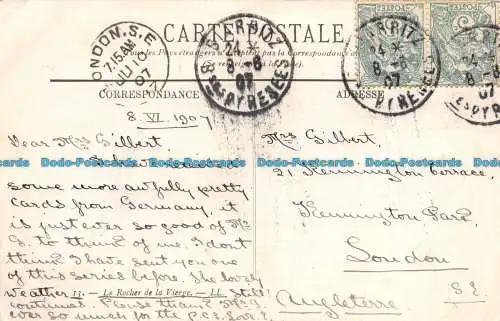 CARTE POSTALE
Tous les Pays étrangers n'acceptent pas la Correspondance
(Se renseigner
LONDON. S.E
7.15 AM
JU 10
07
BIARRITZ
24
8-6
07
BSES PYRENEES
BIARRITZ
24
8-6
07
PYRENEES
24
8
07
PYRE
CORRESPONDANCE
ADRESSE
8. VI. 1907
Dear Mrs Gilbert
some more awfully pretty
cards from Germany, it
is just ever so good of Mr
G. to think of me. I don't
think I have sent you one
of this series before. The lovely
weather 13. - Le Rocher de la Vierge. - LL still
continues. Please thank Mr G
ever so much for the P.C.s.
Mrs Gilbert.
21 Kennington Terrace,
Kennington Park
London
S.E.
Angleterre
Dodo-Postcards Dodo-Postcards Dodo-Postcards Dodo-Postcards
Dodo-Postcards Dodo-Postcards Dodo-Postcards Dodo-Postcards